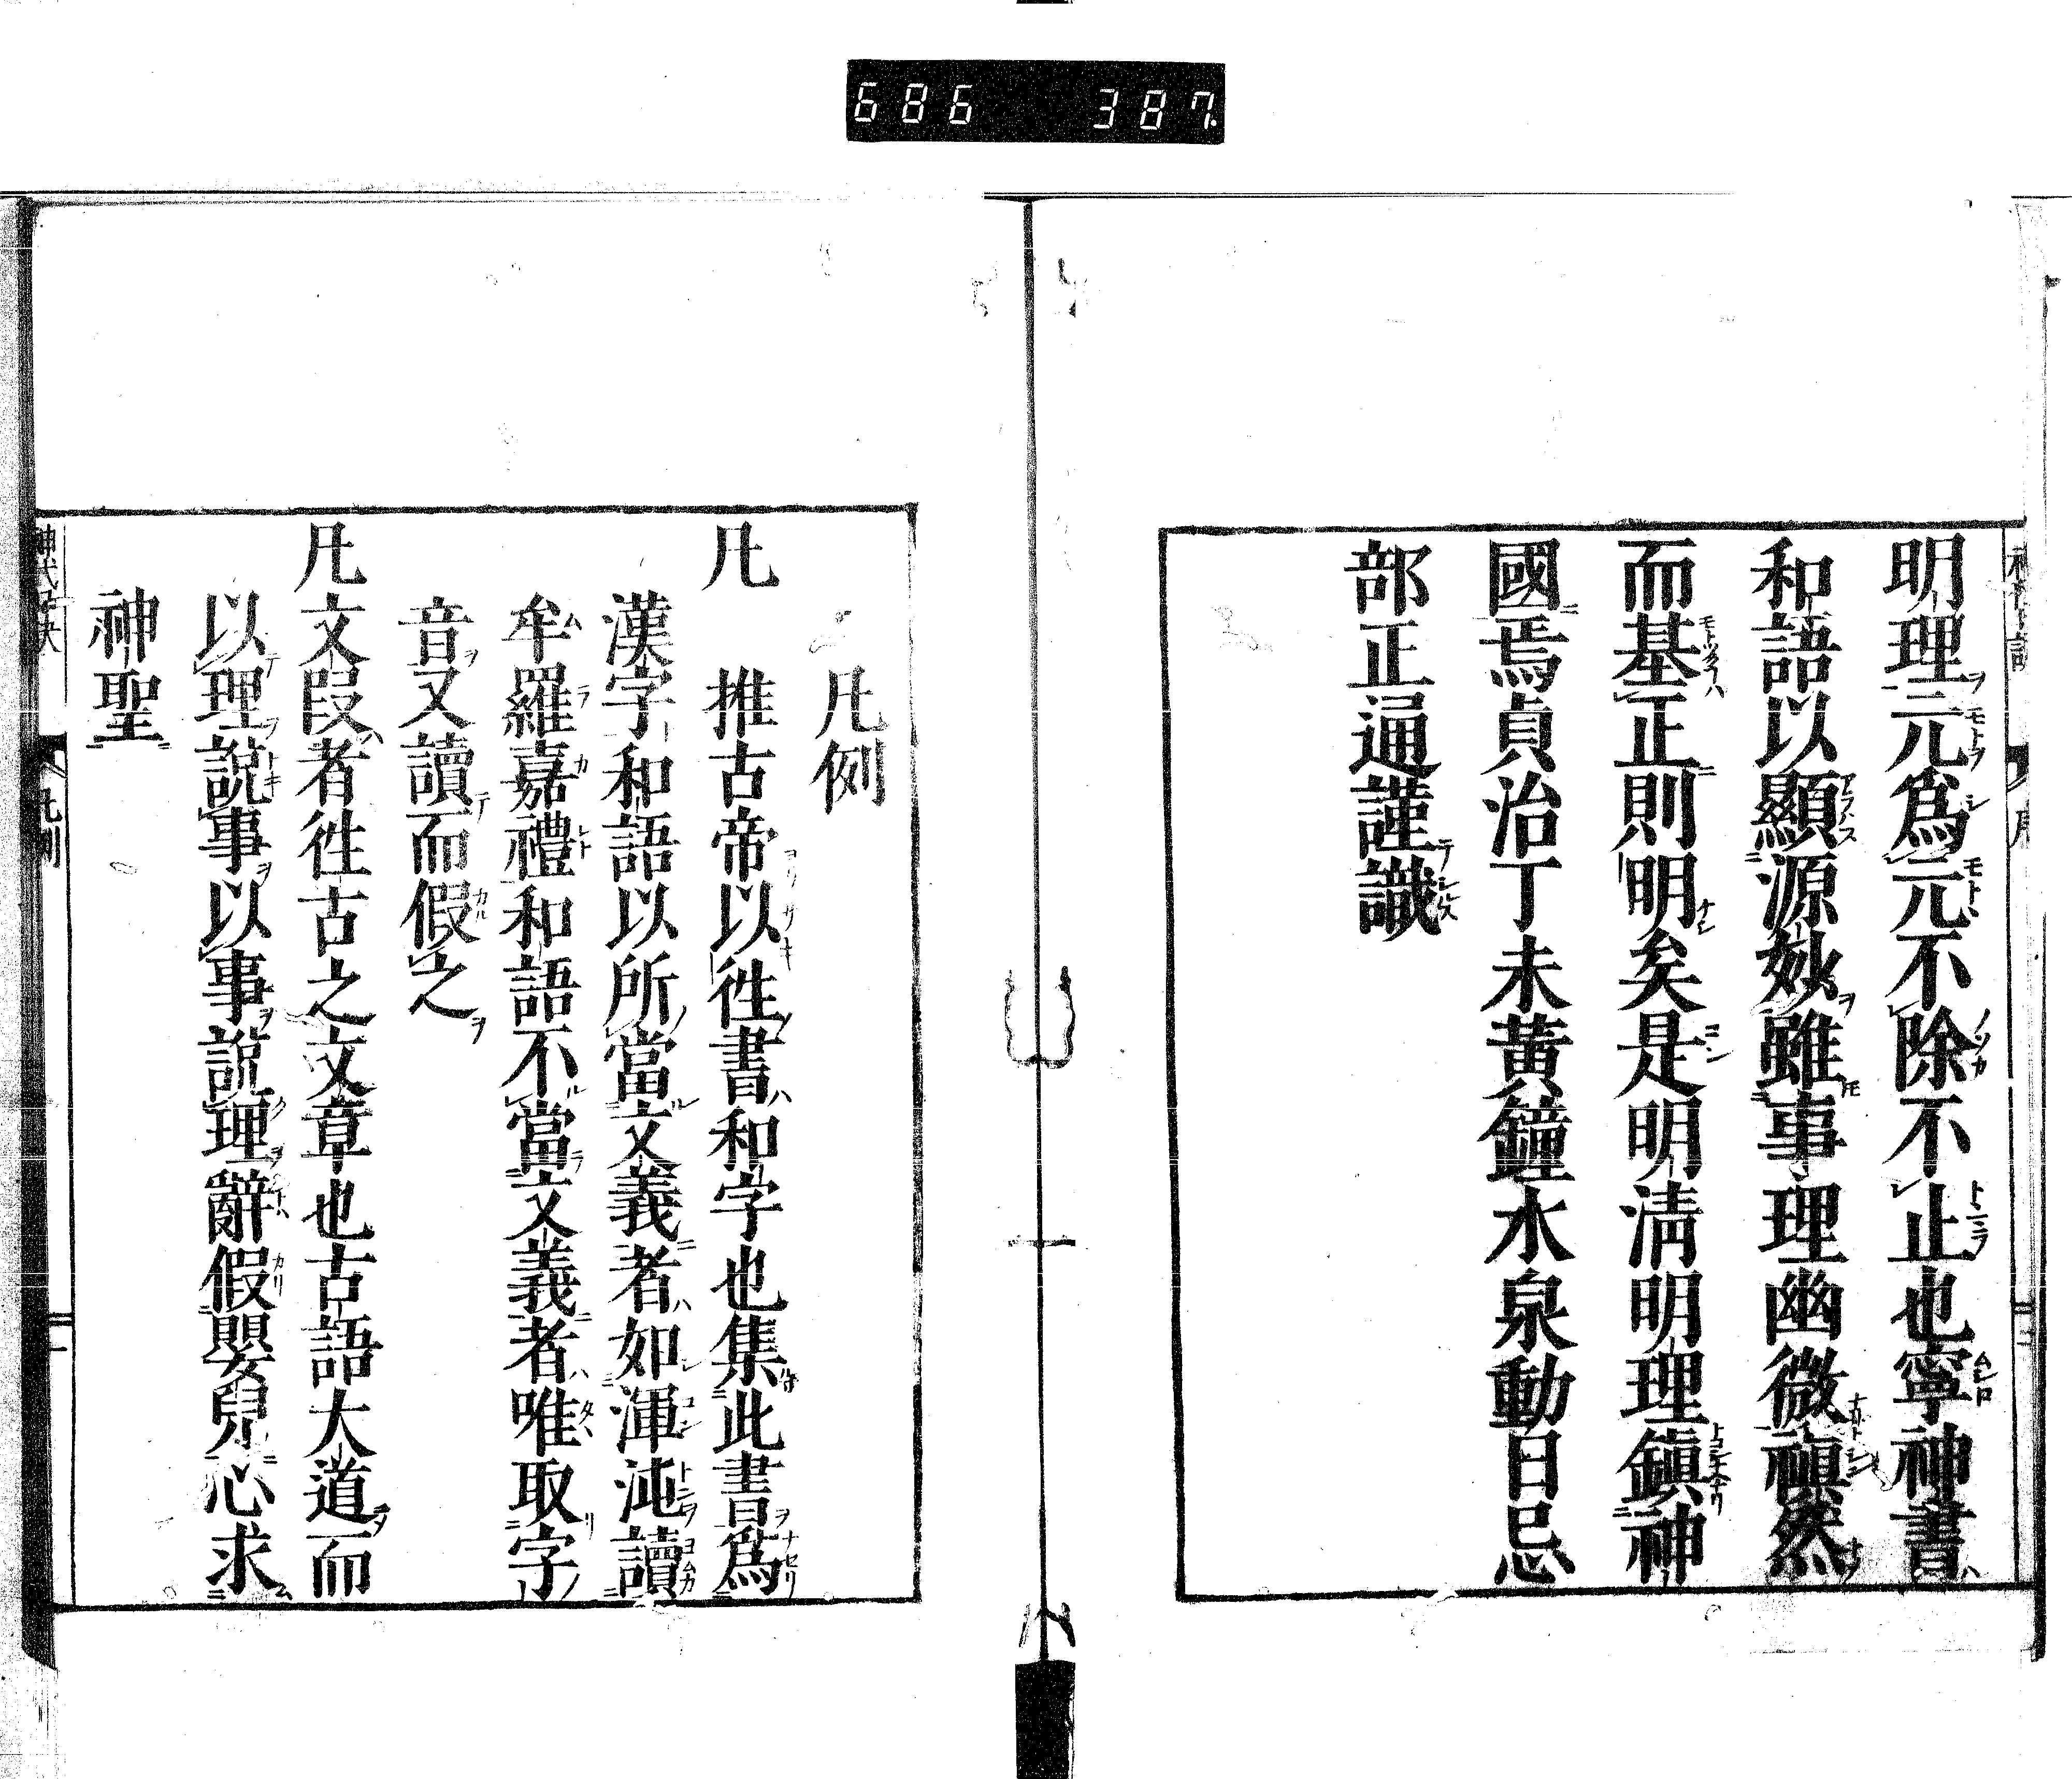 686 387
明理元爲元不除不止也寧神書
和語以顯源妙雖事理幽微禎然
而基正則明矣是明淸明理鎭神
國焉貞治丁未黃鐘水泉動日忌
部正通謹識
凡例
凡 推古帝以徃書和字也集此書爲
漢字和語以所當文義者如渾沌讀
牟羅嘉禮和語不當文義者唯取字
音又讀而假之
凡文段者徃古之文章也古語大道而
以理説事以事説理辭假嬰兒心求
神聖